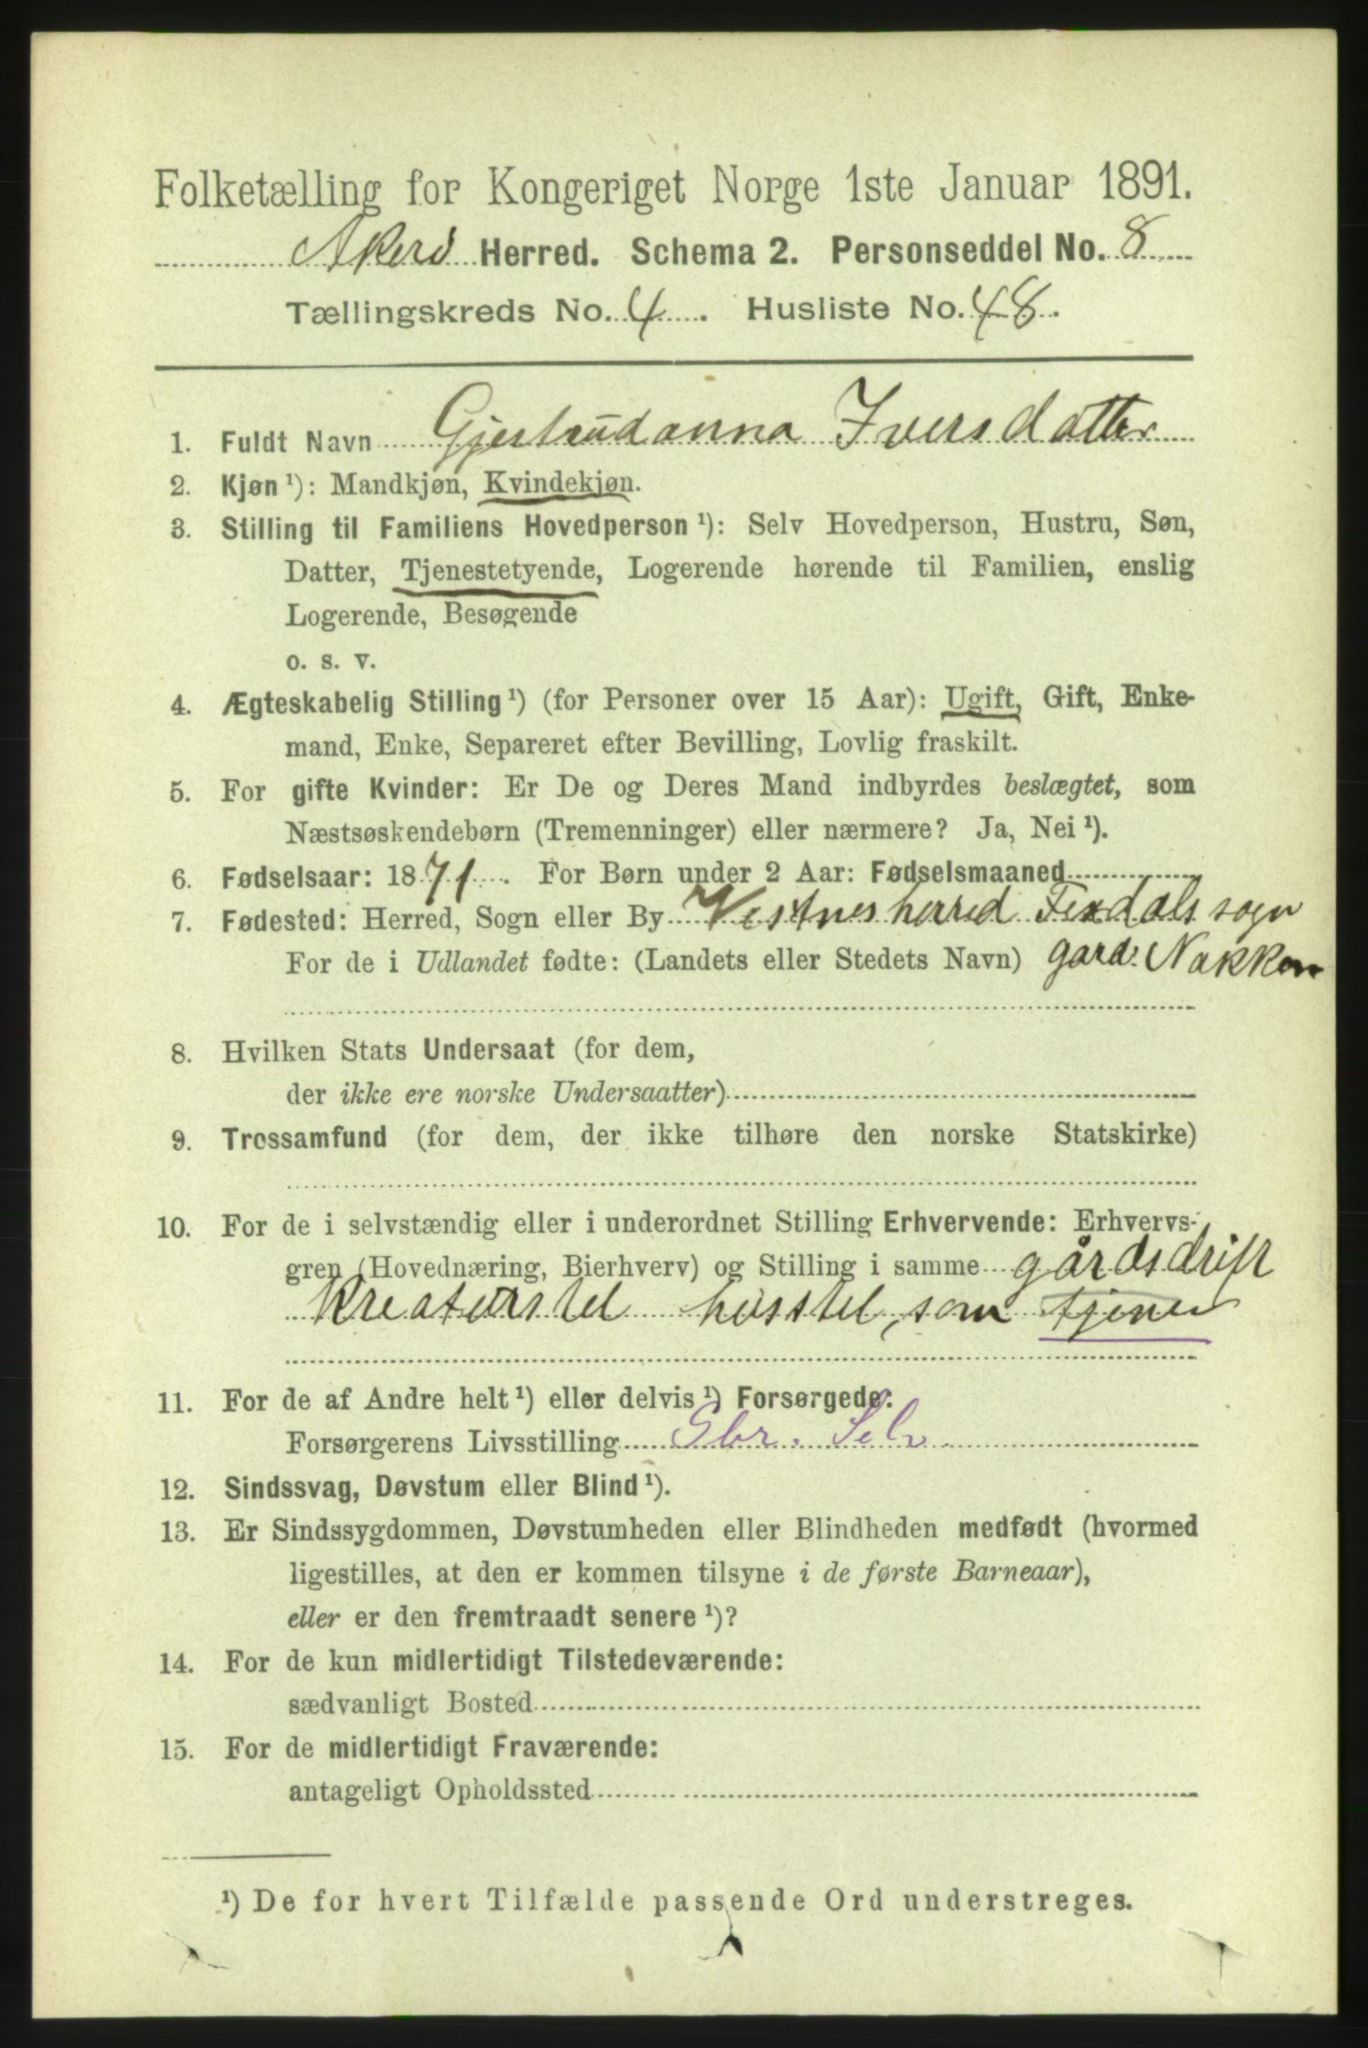 Folketælling for Kongeriget Norge 1ste Januar 1891.
Akerö Herred. Schema 2. Personseddel No. 8
Tællingskreds No. 4. Husliste No. 48.
1. Fuldt Navn Gjertrudanna Iversdatter
2. Kjøn ¹): Mandkjøn, Kvindekjøn.
3. Stilling til Familiens Hovedperson ¹): Selv Hovedperson, Hustru, Søn,
Datter, Tjenestetyende, Logerende hørende til Familien, enslig
Logerende, Besøgende
o. s. v.
4. Ægteskabelig Stilling ¹) (for Personer over 15 Aar): Ugift, Gift, Enke-
mand, Enke, Separeret efter Bevilling, Lovlig fraskilt.
5. For gifte Kvinder: Er De og Deres Mand indbyrdes beslægtet, som
Næstsøskendebørn (Tremenninger) eller nærmere? Ja, Nei ¹).
6. Fødselsaar: 1871. For Børn under 2 Aar: Fødselsmaaned
7. Fødested: Herred, Sogn eller By Vestnesherred Fixdals sogn
For de i Udlandet fødte: (Landets eller Stedets Navn) gard. Nakken
8. Hvilken Stats Undersaat (for dem,
der ikke ere norske Undersaatter)
9. Trossamfund (for dem, der ikke tilhøre den norske Statskirke)
10. For de i selvstændig eller i underordnet Stilling Erhvervende: Erhvervs-
gren (Hovednæring, Bierhverv) og Stilling i samme gårdsdrift
kreaturstel husstel, som tjener
11. For de af Andre helt ¹) eller delvis ¹) Forsørgede:
Forsørgerens Livsstilling Gbr. Selv.
12. Sindssvag, Døvstum eller Blind ¹).
13. Er Sindssygdommen, Døvstumheden eller Blindheden medfødt (hvormed
ligestilles, at den er kommen tilsyne i de første Barneaar),
eller er den fremtraadt senere ¹)?
14. For de kun midlertidigt Tilstedeværende:
sædvanligt Bosted
15. For de midlertidigt Fraværende:
antageligt Opholdssted
¹) De for hvert Tilfælde passende Ord understreges.